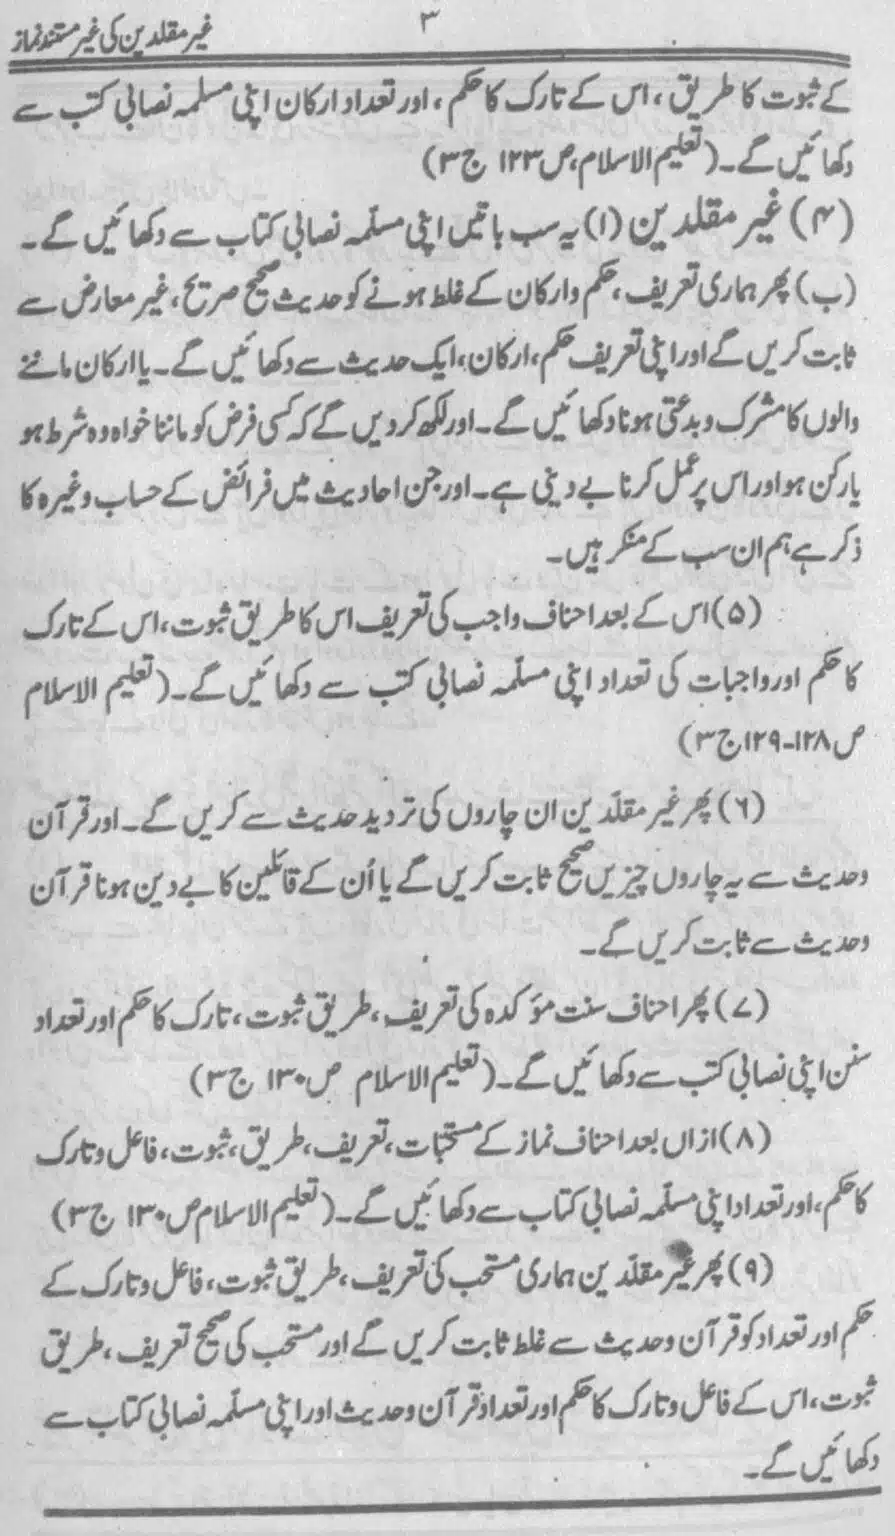 غیر مقلدین کی غیر مستند نماز
۳
کے ثبوت کا طریق، اس کے تارک کا حکم، اور تعداد ارکان اپنی مسلمہ نصابی کتب سے
دکھائیں گے۔ (تعلیم الاسلام، ص ۱۲۳ ج ۳)
(۴) غیر مقلدین (ا) یہ سب باتیں اپنی مسلّمہ نصابی کتاب سے دکھائیں گے۔
(ب) پھر ہماری تعریف، حکم و ارکان کے غلط ہونے کو حدیث صحیح صریح، غیر معارض سے
ثابت کریں گے اور اپنی تعریف حکم، ارکان، ایک حدیث سے دکھائیں گے۔ یا ارکان ماننے
والوں کا مشرک و بدعتی ہونا دکھائیں گے۔ اور لکھ کر دیں گے کہ کسی فرض کو ماننا خواہ وہ شرط ہو
یا رکن ہو اور اس پر عمل کرنا بے دینی ہے۔ اور جن احادیث میں فرائض کے حساب وغیرہ کا
ذکر ہے ہم ان سب کے منکر ہیں۔
(۵) اس کے بعد احناف واجب کی تعریف اس کا طریق ثبوت، اس کے تارک
کا حکم اور واجبات کی تعداد اپنی مسلّمہ نصابی کتب سے دکھائیں گے۔ (تعلیم الاسلام
ص ۱۲۸-۱۲۹ ج ۳)
(۶) پھر غیر مقلّدین ان چاروں کی تردید حدیث سے کریں گے۔ اور قرآن
وحدیث سے یہ چاروں چیزیں صحیح ثابت کریں گے یا اُن کے قائلین کا بے دین ہونا قرآن
وحدیث سے ثابت کریں گے۔
(۷) پھر احناف سنت مؤکدہ کی تعریف، طریق ثبوت، تارک کا حکم اور تعداد
سنن اپنی نصابی کتب سے دکھائیں گے۔ (تعلیم الاسلام ص ۱۳۰ ج ۳)
(۸) ازاں بعد احناف نماز کے مستحبات، تعریف، طریق، ثبوت، فاعل و تارک
کا حکم، اور تعداد اپنی مسلّمہ نصابی کتاب سے دکھائیں گے۔ (تعلیم الاسلام ص ۱۳۰ ج ۳)
(۹) پھر غیر مقلّدین ہماری مستحب کی تعریف، طریق ثبوت، فاعل و تارک کے
حکم اور تعداد کو قرآن وحدیث سے غلط ثابت کریں گے اور مستحب کی صحیح تعریف، طریق
ثبوت، اس کے فاعل و تارک کا حکم اور تعداد قرآن وحدیث اور اپنی مسلّمہ نصابی کتاب سے
دکھائیں گے۔